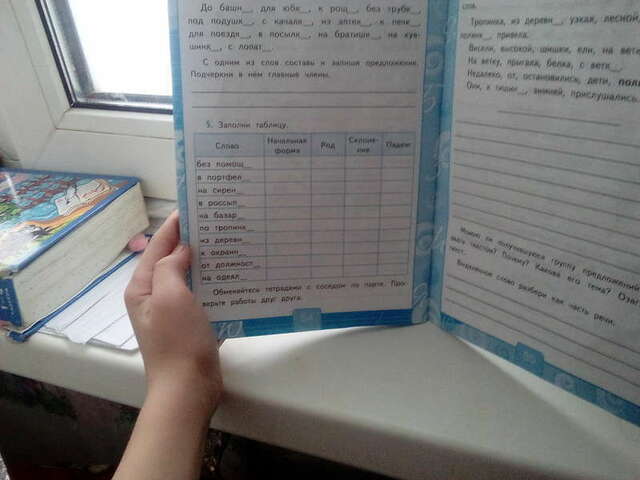 До башн__, для юбк__, к рощ__, без трубк__,
под подушк__, с качалк__, из аптек__, к пенк__,
для поезд__, в посылк__, на братишк__, на кув-
шинк__, с лопат__.
С одним из слов составь и запиши предложение.
Подчеркни в нём главные члены.
5. Заполни таблицу.
Слово Начальная форма Род Склоне-ние Падеж
без помощ__
в портфел__
на сирен__
в россып__
на базар__
по тропинк__
из деревн__
к охранн__
от должност__
на одеял__
Обменяйтесь тетрадями с соседом по парте. Про-
верьте работы друг друга.
слов.
Тропинка, из деревн__, узкая, лесной,
привела.
Висели, высокой, шишки, ели, на ветк
На ветку, прыгала, белка, с ветк__.
Недалеко, от, остановились, дети,
Они, к тишин__, зимней, прислушались.
Можно ли получившуюся группу предложений
частью? Почему? Какова его тема? Озаг
текст.
Выделенное слово разбери как часть речи.